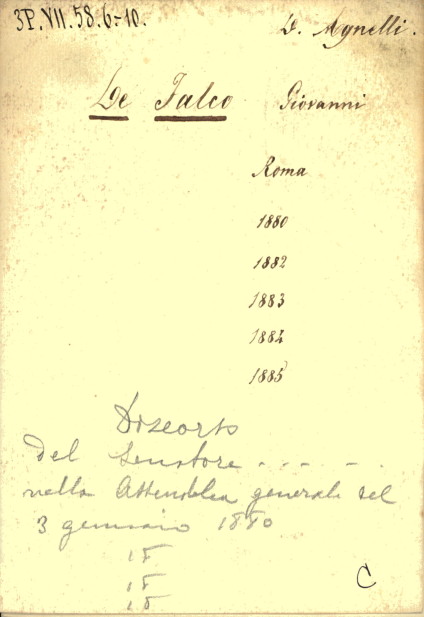 3P.VII.58.6-10.
D. Agnelli.
De Falco Giovanni
Roma
1880
1882
1883
1884
1885
Discorso
del Senatore . . . - - .
nella Assemblea generale del
3 gennaio 1880
18
18
18
C